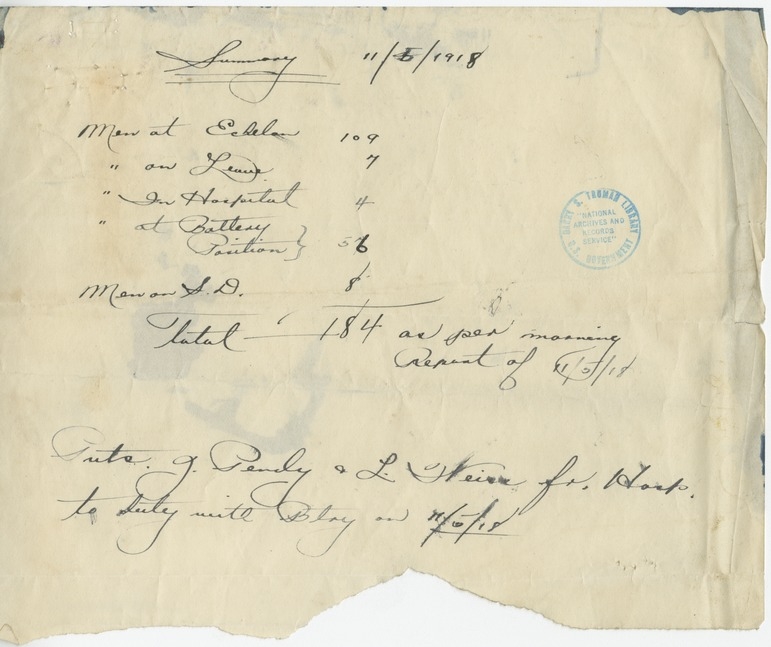 Summary 11/5/1918
Men at Echelon 109
" on Leave 7
" In Hospital 4
" at Battery
Position } 56
Men on S.D. 8
Total — 184 as per morning
Report of 11/5/18
HARRY S. TRUMAN LIBRARY
"NATIONAL
ARCHIVES AND
RECORDS
SERVICE"
U.S. GOVERNMENT
Pvts. J. Pendy & L. Weiss fr. Hosp.
to duty with Btry on 11/5/18